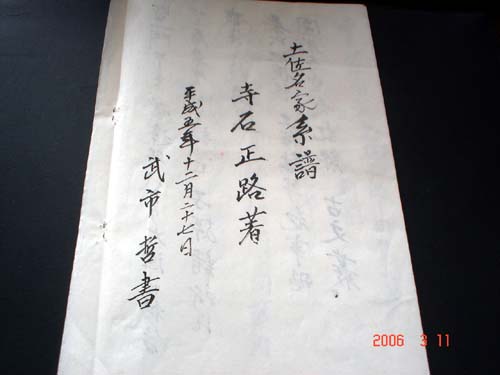 土佐名家系譜
寺石正路著
平成五年十二月二十七日
武市哲書
2006 3 11